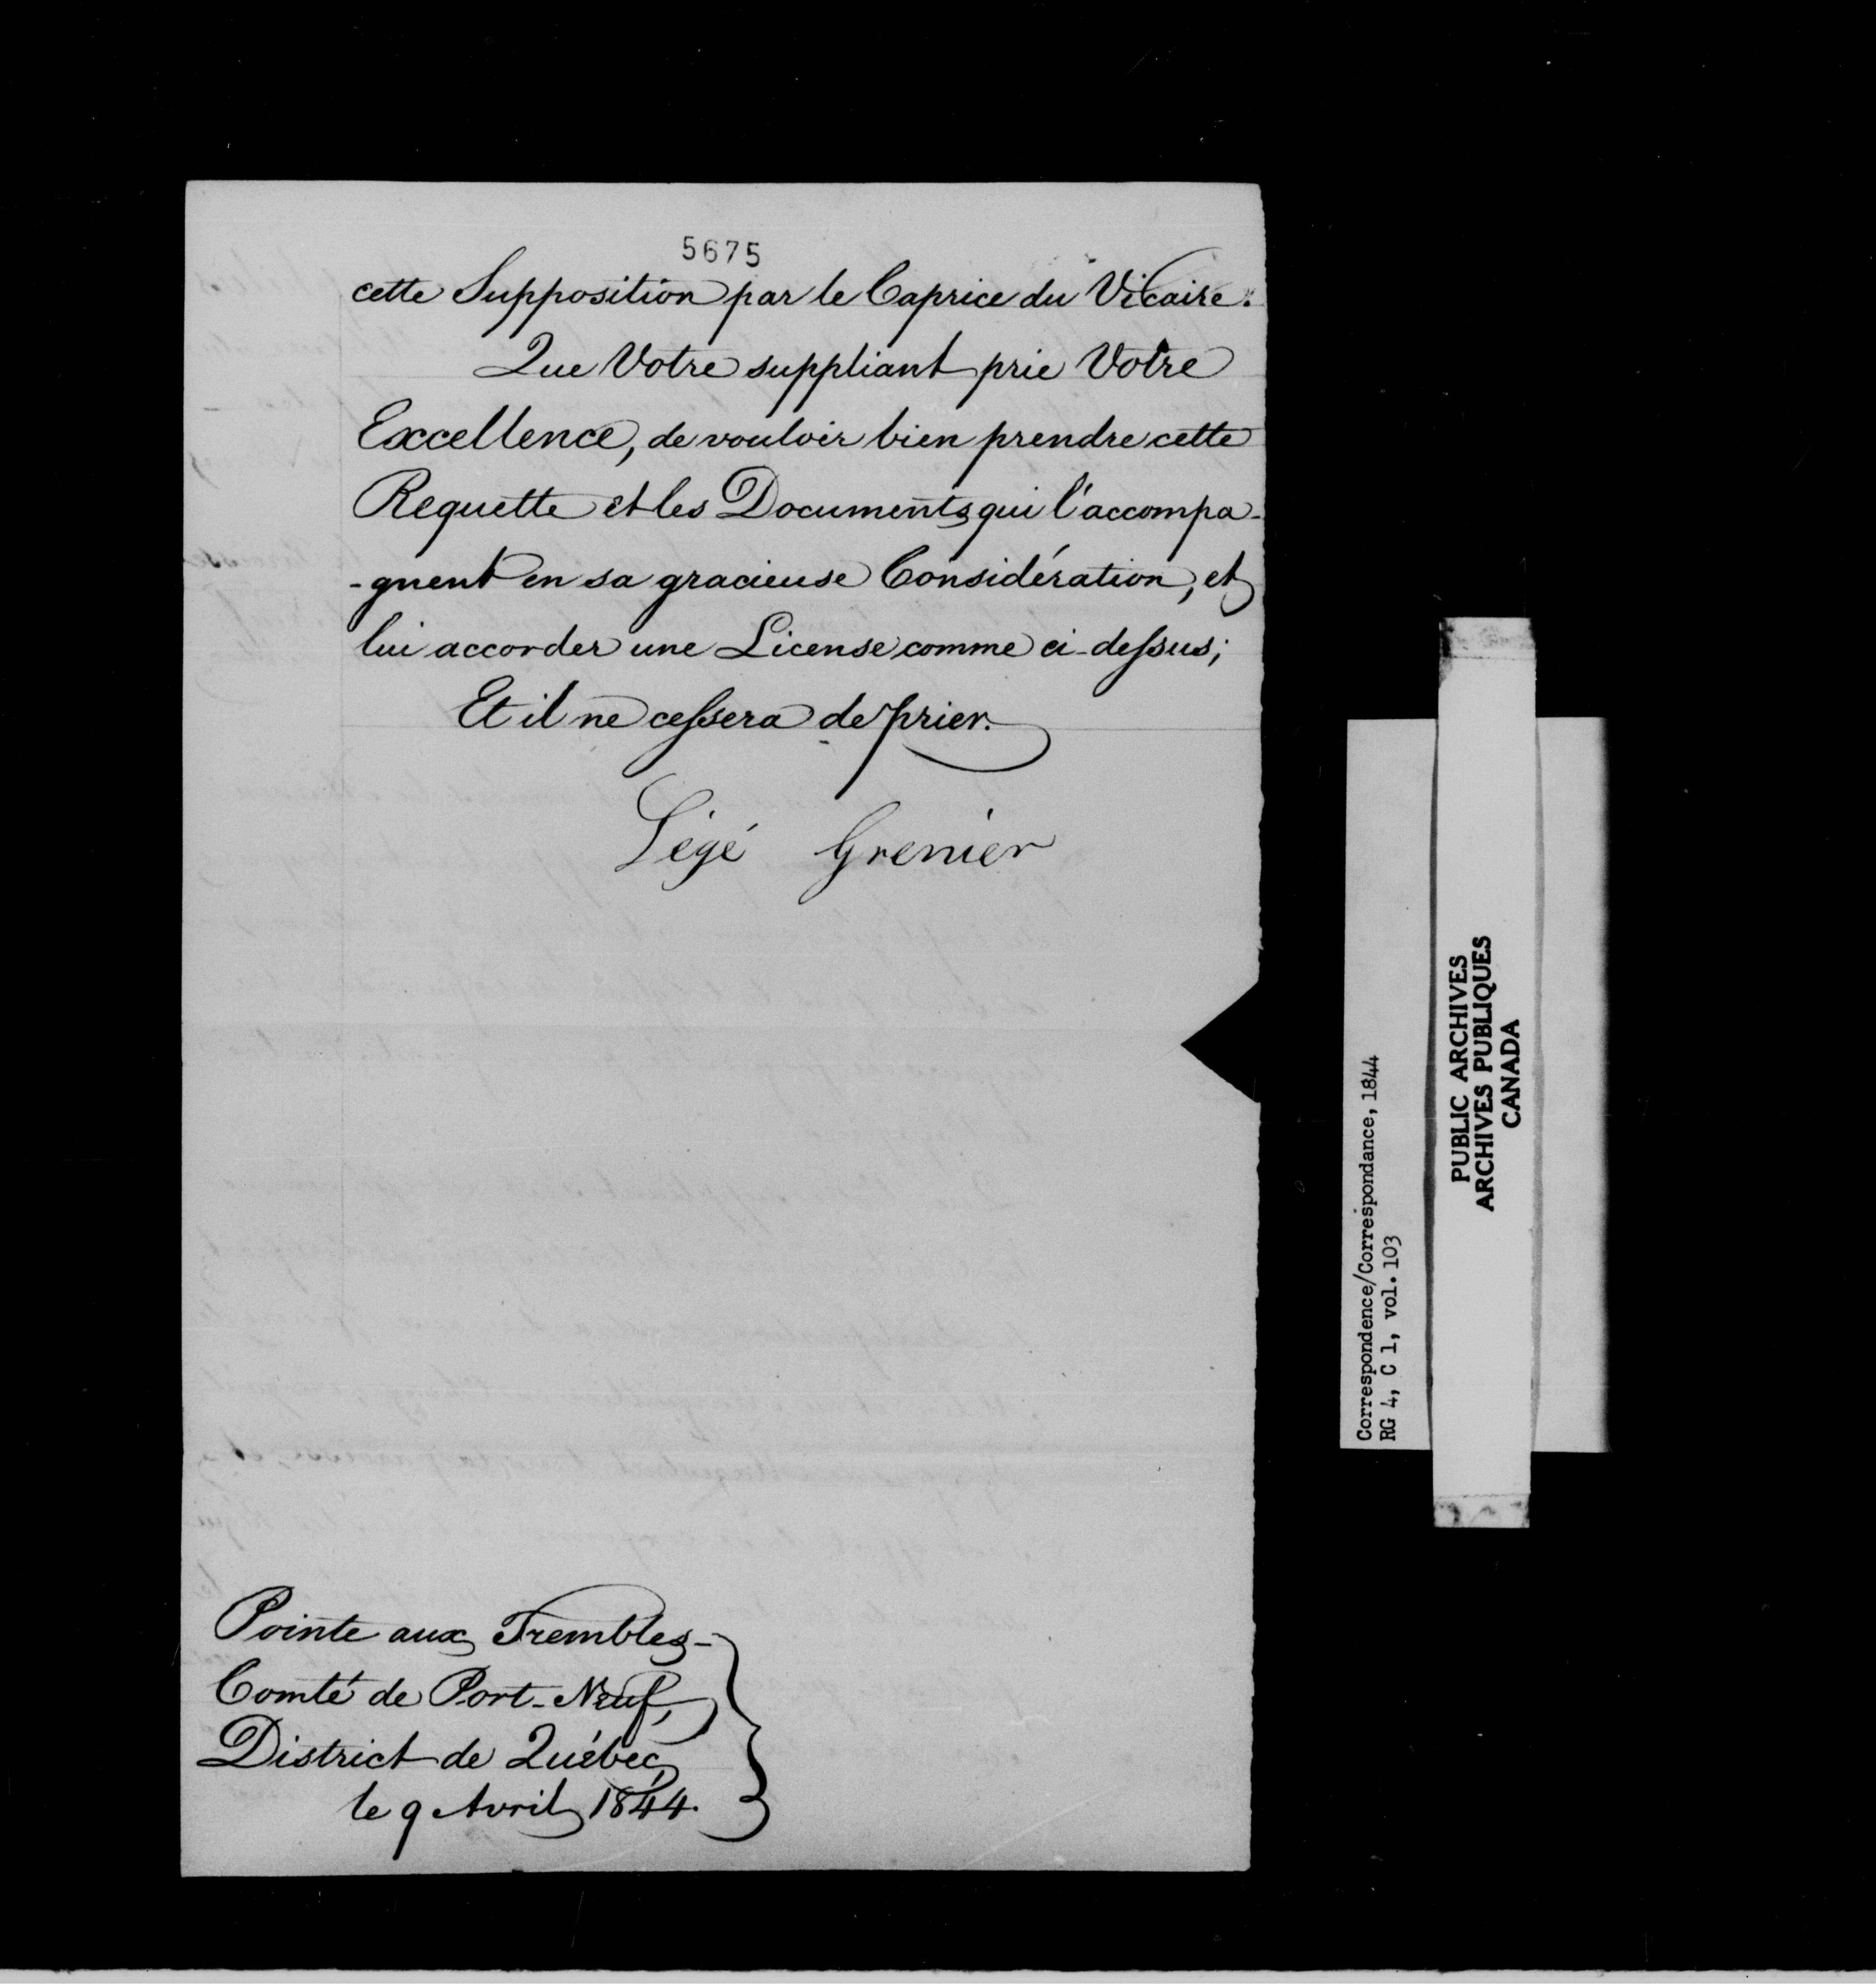 5675
cette Supposition par le Caprice du Vicaire.
Que Votre suppliant prie Votre
Excellence, de vouloir bien prendre cette
Requette et les Documents qui l'accompa-
-gnent en sa gracieuse Considération, et
lui accorder une License comme ci-dessus;
Et il ne cessera de prier.
Légé Grenier
Pointe aux Trembles-
Comté de Port-Neuf,
District de Québec,
le 9 Avril 1844.
Correspondence/Correspondance, 1844
RG 4, C 1, vol. 103
PUBLIC ARCHIVES
ARCHIVES PUBLIQUES
CANADA